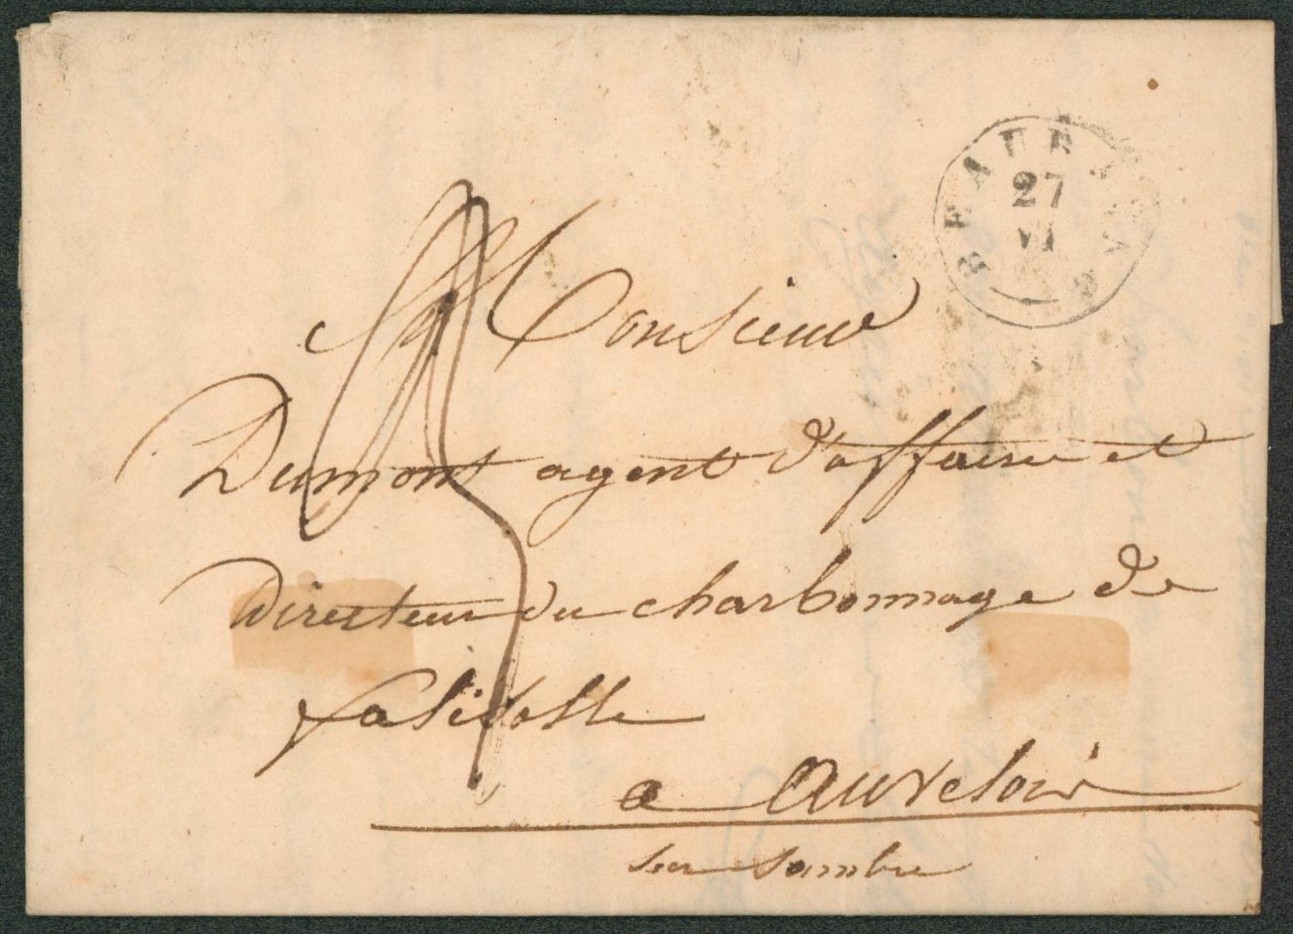 BEAURAING
27
VI
Monsieur
Dumont agent d'affaire et
Directeur du charbonnage de
falisolle
a auveloir
sur sambre